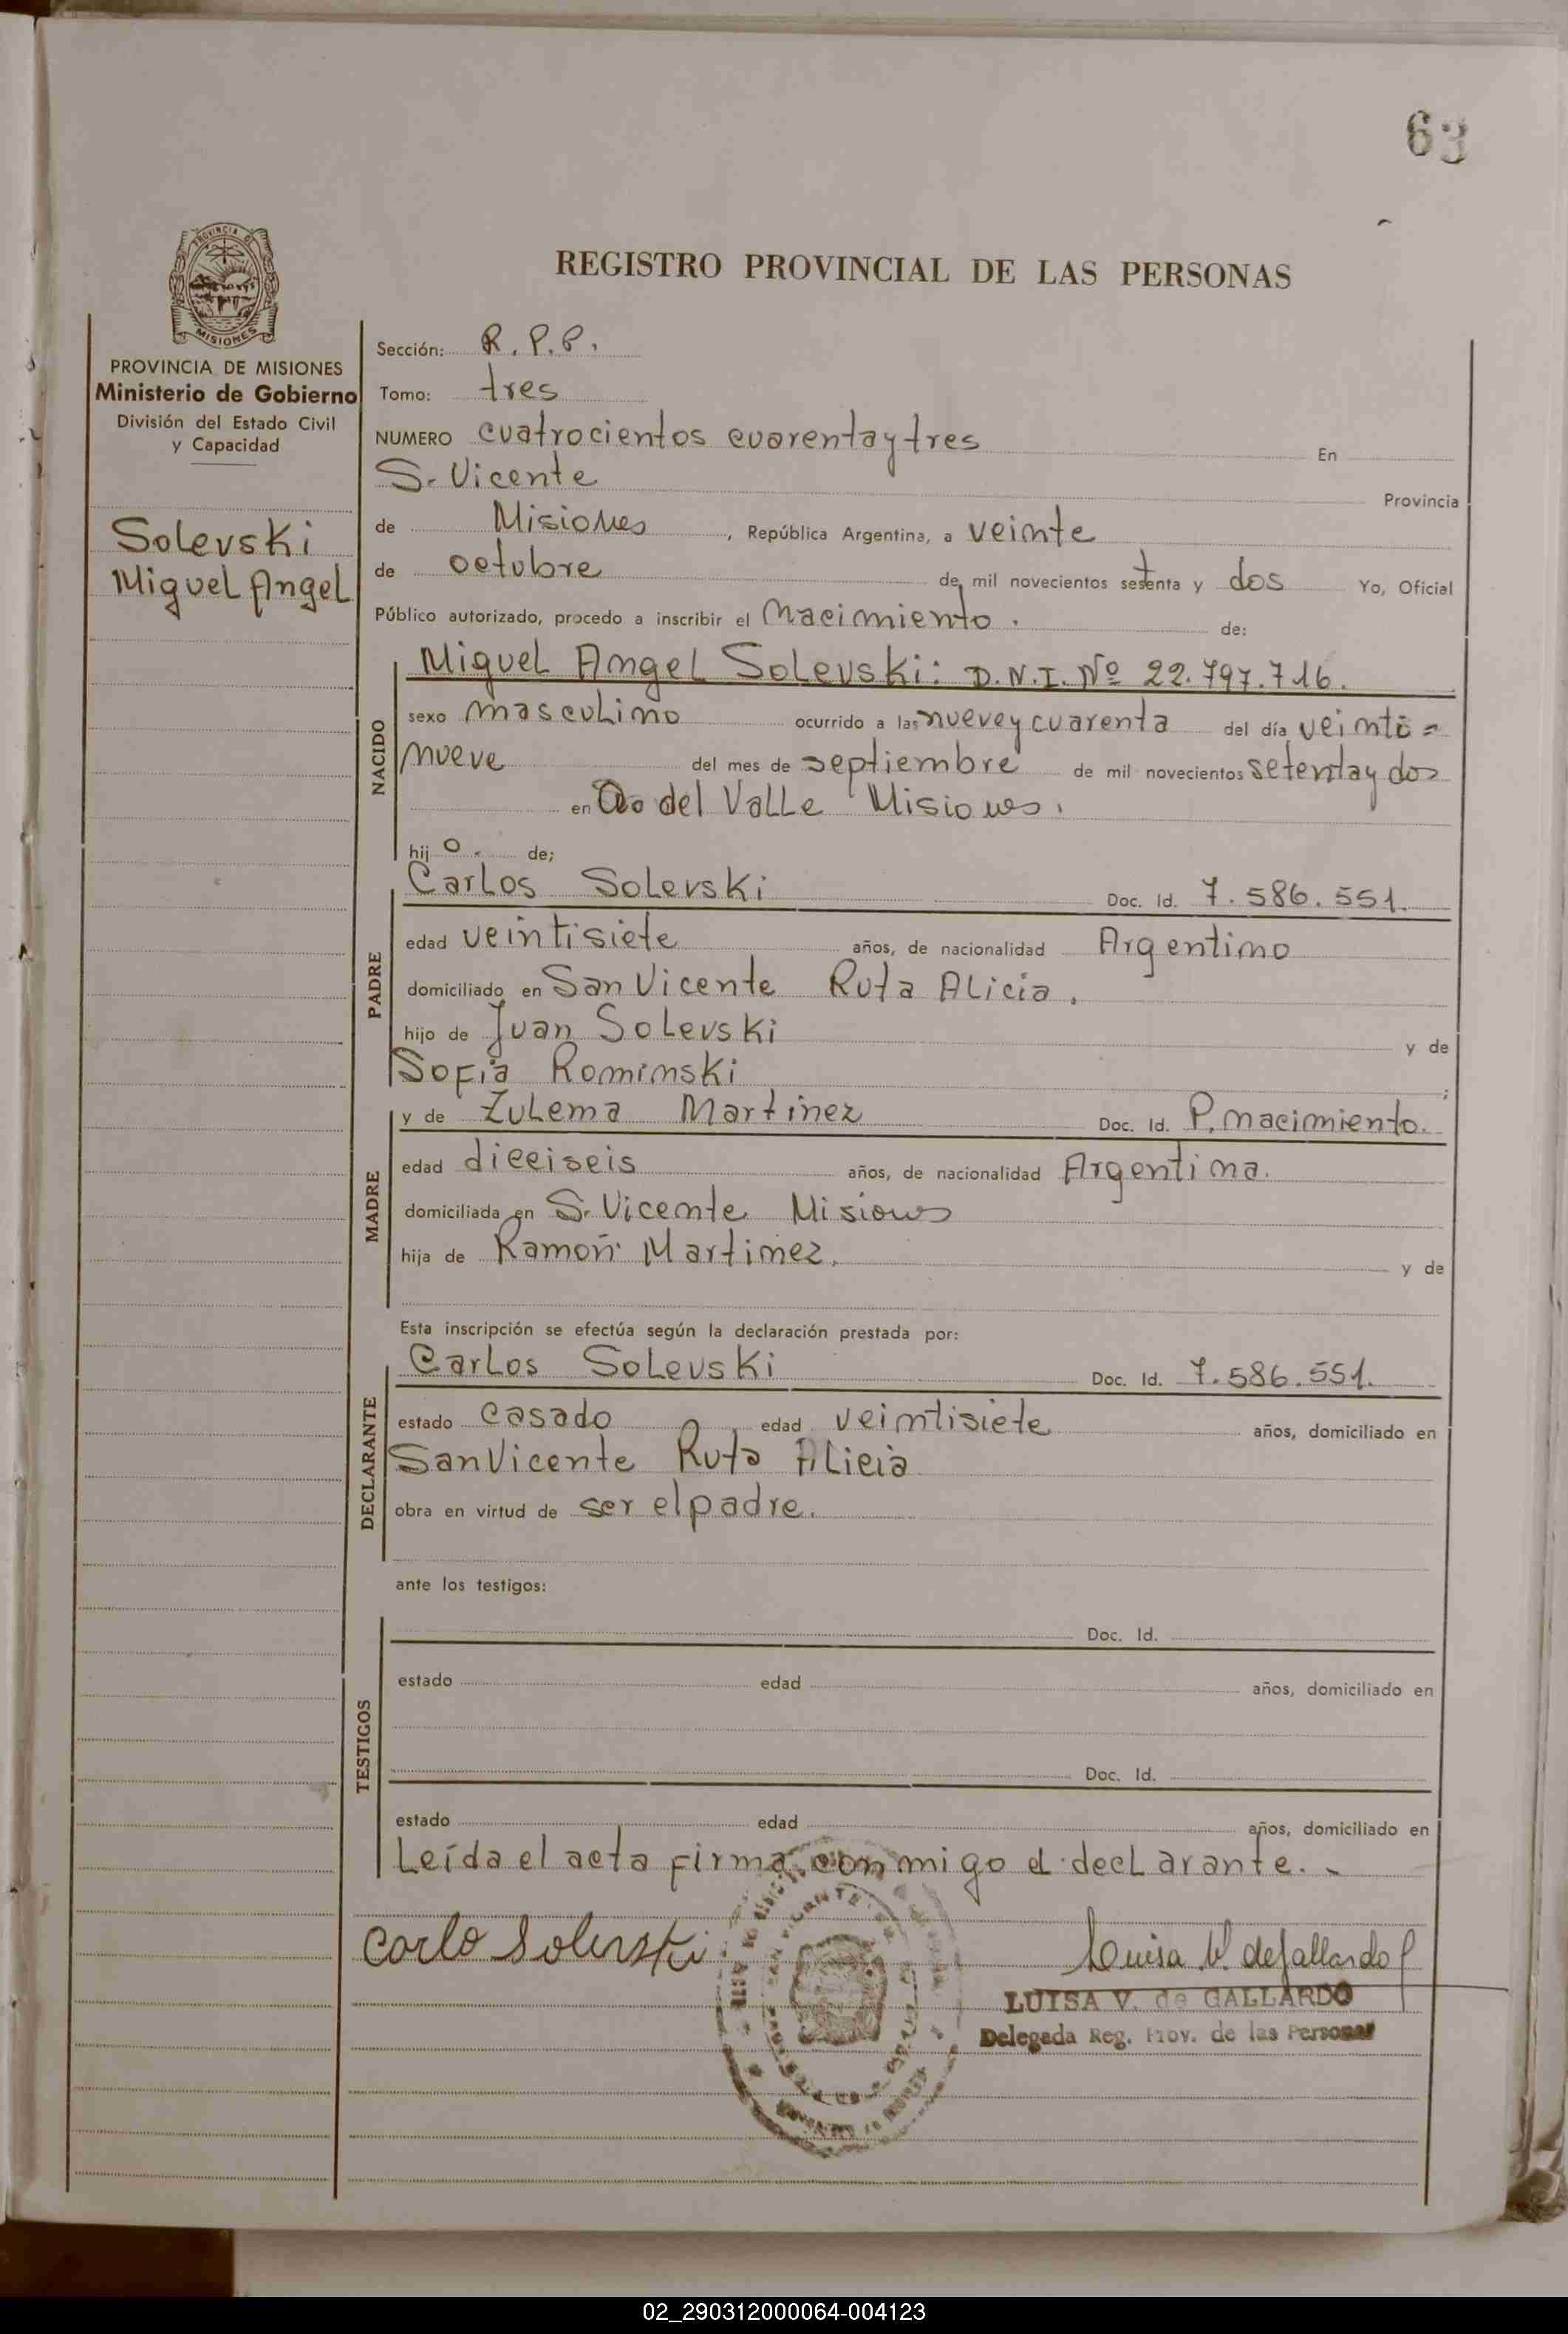 63
REGISTRO PROVINCIAL DE LAS PERSONAS
PROVINCIA DE
MISIONES
PROVINCIA DE MISIONES
Ministerio de Gobierno
División del Estado Civil
y Capacidad
Solevski
Miguel Angel
Sección: R.P.P.
Tomo: tres
NUMERO cuatrocientos cuarenta y tres En
S. Vicente Provincia
de Misiones, República Argentina, a veinte
de octubre de mil novecientos setenta y dos Yo, Oficial
Público autorizado, procedo a inscribir el Nacimiento. de:
NACIDO
Miguel Angel Solevski: D.N.I. Nº 22.797.716.
sexo masculino ocurrido a las nueve y cuarenta del día veinti=
nueve del mes de septiembre de mil novecientos setenta y dos
en Ao del Valle Misiones.
hijo. de;
PADRE
Carlos Solevski Doc. Id. 7.586.551.
edad veintisiete años, de nacionalidad Argentino
domiciliado en San Vicente Ruta Alicia.
hijo de Juan Solevski y de
Sofia Rominski ;
MADRE
y de Zulema Martinez Doc. Id. P. nacimiento.
edad dieciseis años, de nacionalidad Argentina.
domiciliada en S. Vicente Misiones
hija de Ramon Martinez. y de
Esta inscripción se efectúa según la declaración prestada por:
DECLARANTE
Carlos Solevski Doc. Id. 7.586.551.
estado casado edad veintisiete años, domiciliado en
San Vicente Ruta Alicia
obra en virtud de ser el padre.
ante los testigos:
TESTIGOS
Doc. Id.
estado edad años, domiciliado en
Doc. Id.
estado edad años, domiciliado en
Leída el acta firma conmigo el declarante.-
Carlo Solevski
Luisa V. de Gallardo
LUISA V. de GALLARDO
Delegada Reg. Prov. de las Personas
02_290312000064-004123